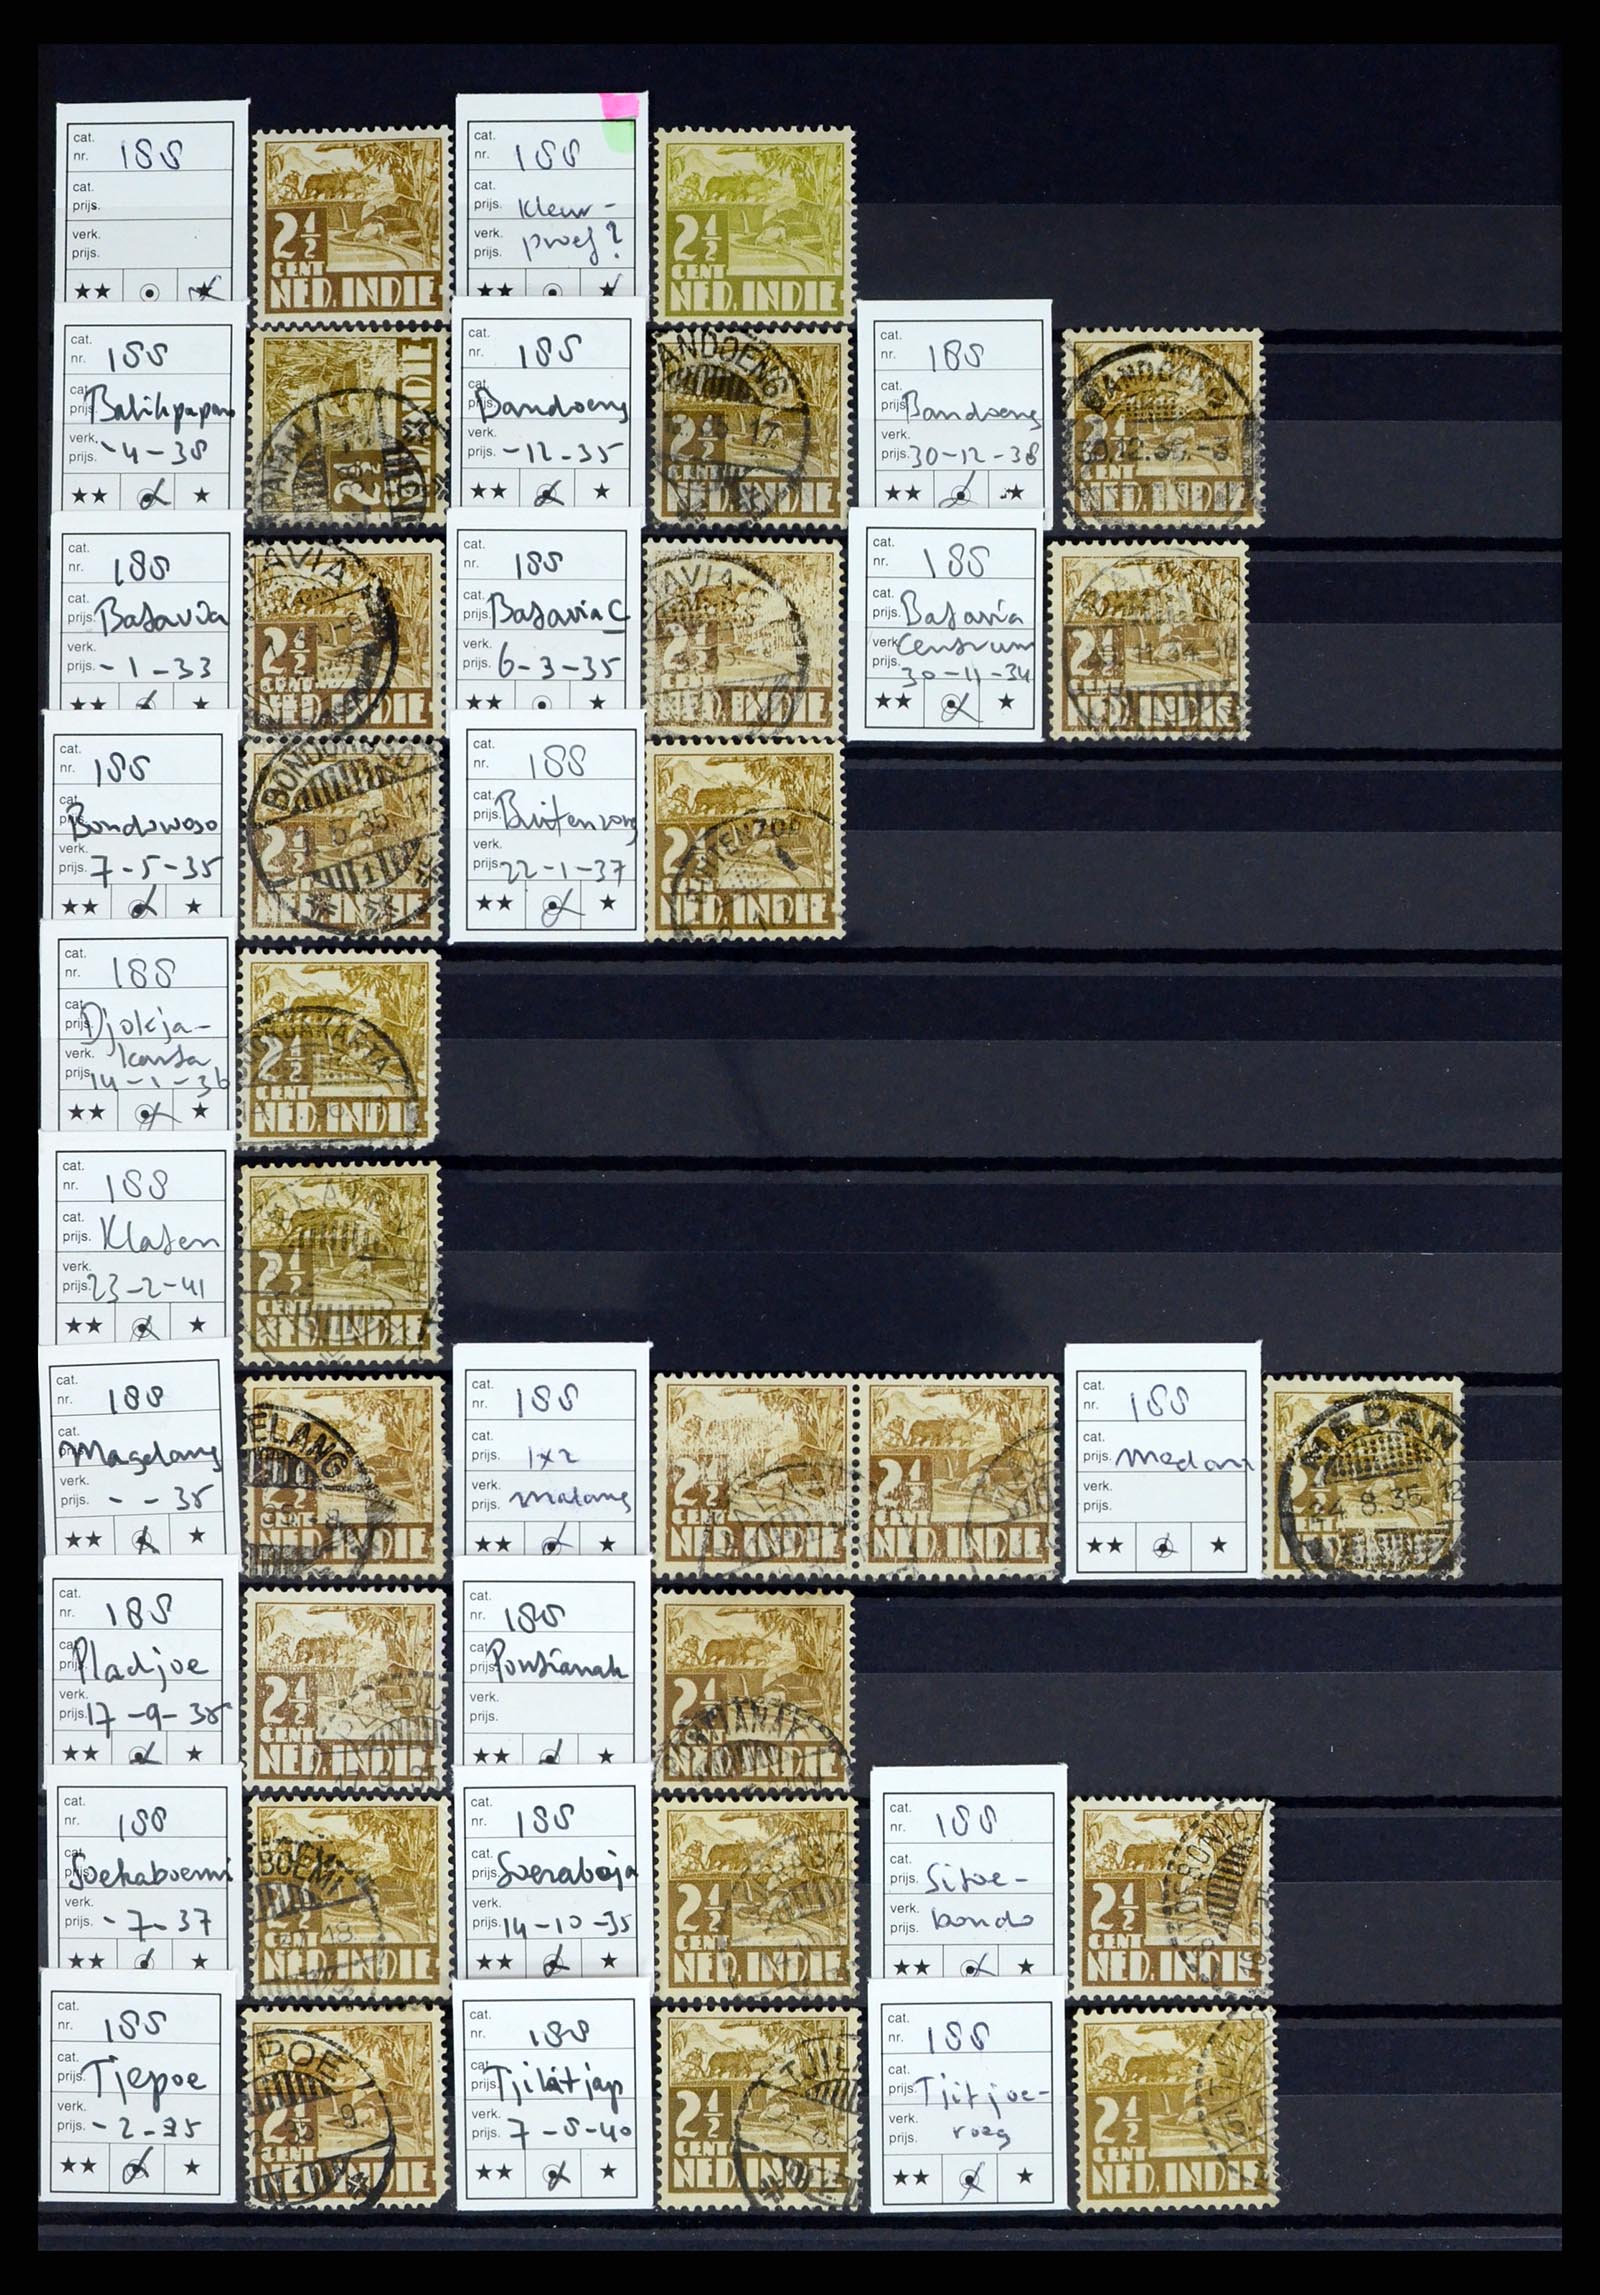 cat.
nr. 188
cat.
prijs.
verk.
prijs.
2½
CENT
NED. INDIE
cat.
nr. 188
cat.
prijs. Kleur-
verk.
prijs. proef?
2½
CENT
NED. INDIE
cat.
nr. 188
cat.
prijs. Balikpapan
verk.
prijs. -4-38
PAPAN
2½
cat.
nr. 188
cat.
prijs. Bandoeng
verk.
prijs. -12-35
ANDOENG
2½
CENT
NED. INDIE
cat.
nr. 188
cat.
prijs. Bandoeng
verk.
prijs. 30-12-38
CENT
NED. INDIE
cat.
nr. 188
cat.
prijs. Batavia
verk.
prijs. -1-33
AVIA
2½
NED. INDIE
cat.
nr. 188
cat.
prijs. Batavia C
verk.
prijs. 6-3-35
AVIA
2½
cat.
nr. 188
cat.
prijs. Batavia
verk. Centrum
prijs. 30-11-34
2½
cat.
nr. 188
cat.
prijs. Bondowoso
verk.
prijs. 7-5-35
BONDO
2½
5.35.11
NED. INDIE
cat.
nr. 188
cat.
prijs. Buitenzorg
verk.
prijs. 22-1-37
TENZO
NED. INDIE
cat.
nr. 188
cat.
prijs. Djokja-
verk. karta
prijs. 14-1-36
JAKARTA
2½
CENT
NED. INDIE
cat.
nr. 188
cat.
prijs. Klaten
verk.
prijs. 23-2-41
2½
CENT
NED. INDIE
cat.
nr. 188
cat.
prijs. Magelang
verk.
prijs. - -35
ELANG
2½
NED. INDIE
cat.
nr. 188
cat.
prijs. 1x2
verk.
prijs. Malang
2½
CENT
NED. INDIE
2½
CENT
NED. INDIE
cat.
nr. 188
cat.
prijs. Medan
verk.
prijs.
MEDAN
24.8.35.12
NED. INDIE
cat.
nr. 188
cat.
prijs. Pladjoe
verk.
prijs. 17-9-35
2½
CENT
NED. INDIE
17.9.35
cat.
nr. 188
cat.
prijs. Pontianak
verk.
prijs.
2½
TIANAK
NED. INDIE
cat.
nr. 188
cat.
prijs. Soekaboemi
verk.
prijs. -7-37
BOEMI
2½
CENT
NED. INDIE
cat.
nr. 188
cat.
prijs. Soerabaja
verk.
prijs. 14-10-35
2½
CENT
NED. INDIE
cat.
nr. 188
cat.
prijs. Sitoe-
verk.
prijs. bondo
2½
CENT
NED. INDIE
cat.
nr. 188
cat.
prijs. Tjepoe
verk.
prijs. -2-35
POE
2½
CENT
NED. INDIE
cat.
nr. 188
cat.
prijs. Tjilatjap
verk.
prijs. 7-8-40
TJILA
2½
CENT
NED. INDIE
cat.
nr. 188
cat.
prijs. Tjitjoe-
verk.
prijs. roeg
2½
CENT
NED. INDIE